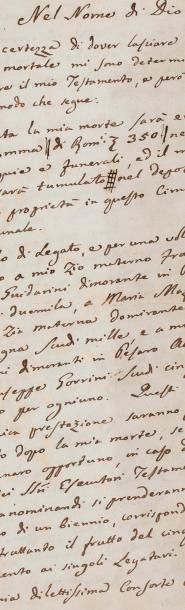 Nel Nome di Dio
certezza di dover lasciare
mortale mi sono determ
re il mio Testamento, e però
modo che segue.
ta la mia morte sarà e
omma di Rom: 350
quie e funerali, ed il m
sarà tumulato nel depo
proprietà in questo Cim
unale.
lo di Legato, e per una vol
o a mio Zio materno Fra
Guidarini dimorante in
duemila, a Maria Ma
Zia materna dimorante
gna Scudi mille e a m
i dimoranti in Pesaro
useppe Gorrini Scudi cin
o per ogniuno. Questi
ica prestazione saranno
o dopo la mia morte, se
naro opportuno, in caso
ei SSri Esecutori Testam
nominandi si prenderan
o di un biennio, corrispond
fruttanto il frutto del cin
ento ai singoli Legatari.
ia dilettissima Consorte